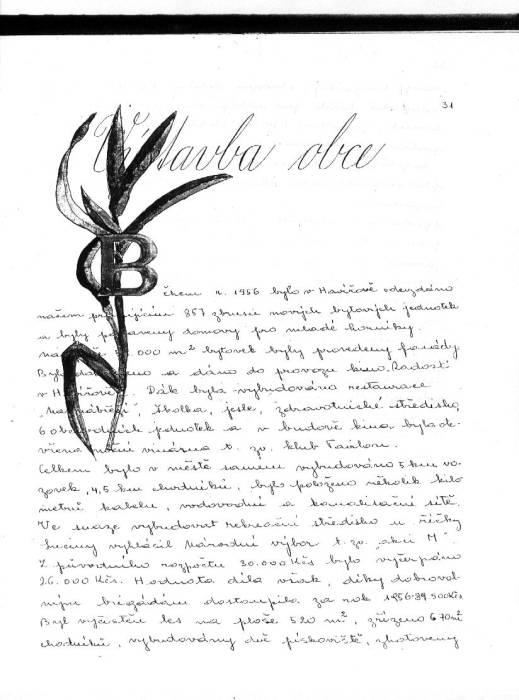 31
Výstavba obce
Během r. 1956 bylo v Havířově odevzdáno
našim pracujícím 857 zbrusu nových bytových jednotek
a byly postaveny domovy pro mladé horníky.
000 m² bytovek byly provedeny fasády
Bylo a dáno do provozu kino „Radost"
v Havířově. Dák byla vybudována restaurace
školka, jesle, zdravotnické středisko,
6 obchodních jednotek a v budově kina byla ote-
vřena noční vinárna t. zv. klub Tairlom.
Celkem bylo v městě samém vybudováno 5 km vo-
zovek, 4,5 km chodníků, bylo položeno několik kilo
metrů kabelu, vodovodní a kanalisační sítě.
Ve snaze vybudovat rekreační středisko u říčky
Lučiny vyhlásil Národní výbor t. zv. „akci M".
Z původního rozpočtu 30.000 Kčs bylo vyčerpáno
26.000 Kčs. Hodnota díla však, díky dobrovol-
ným brigádám dostoupila za rok 1956 89.500 Kčs
Byl vyčištěn les na ploše 520 m², zřízeno 670 m²
chodníků, vybudovány dvě pískoviště, zhotoveny